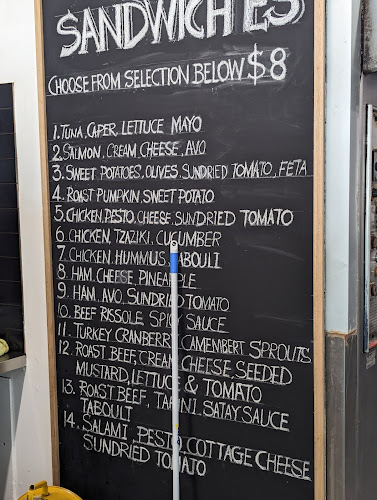 SANDWICHES
CHOOSE FROM SELECTION BELOW $8
1. TUNA, CAPER, LETTUCE MAYO
2. SALMON, CREAM CHEESE, AVO
3. SWEET POTATOES, OLIVES, SUNDRIED TOMATO, FETA
4. ROAST PUMPKIN, SWEET POTATO
5. CHICKEN, PESTO, CHEESE, SUNDRIED TOMATO
6. CHICKEN, TZAZIKI, CUCUMBER
7. CHICKEN, HUMMUS, TABOULI
8. HAM, CHEESE, PINEAPPLE
9. HAM, AVO, SUNDRIED TOMATO
10. BEEF RISSOLE, SPICY SAUCE
11. TURKEY CRANBERRY, CAMEMBERT SPROUTS
12. ROAST BEEF, CREAM CHEESE, SEEDED
MUSTARD, LETTUCE & TOMATO
13. ROAST BEEF, TAHINI, SATAY SAUCE
TABOULI
14. SALAMI, PESTO, COTTAGE CHEESE
SUNDRIED TOMATO